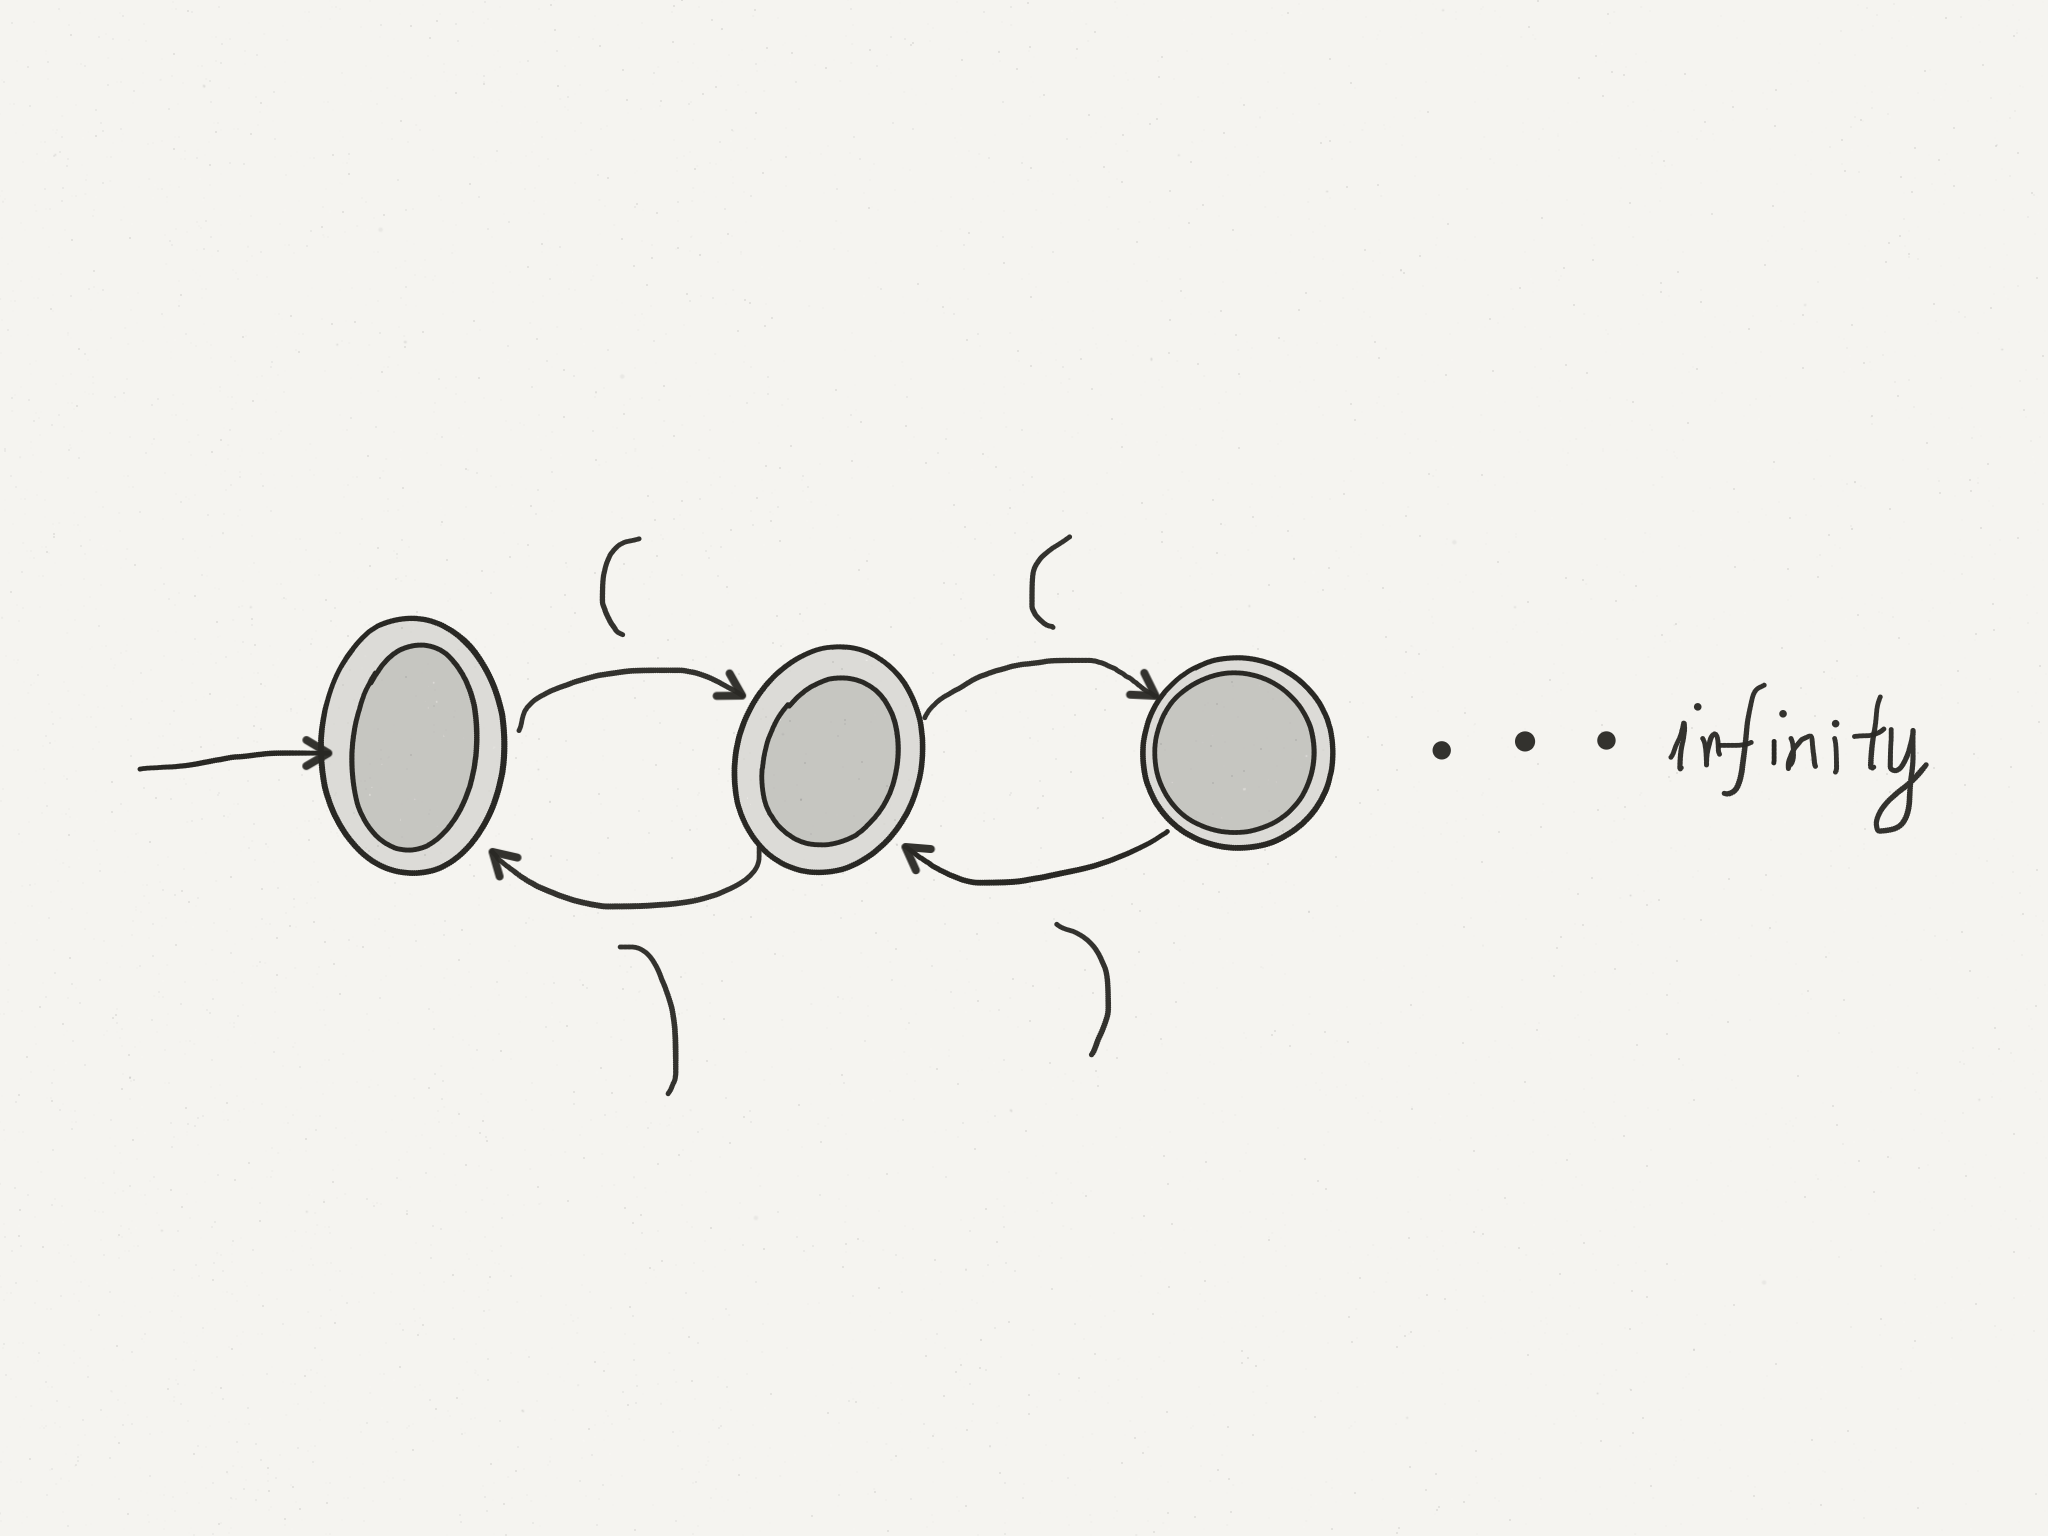 ( (
• • • infinity
) )